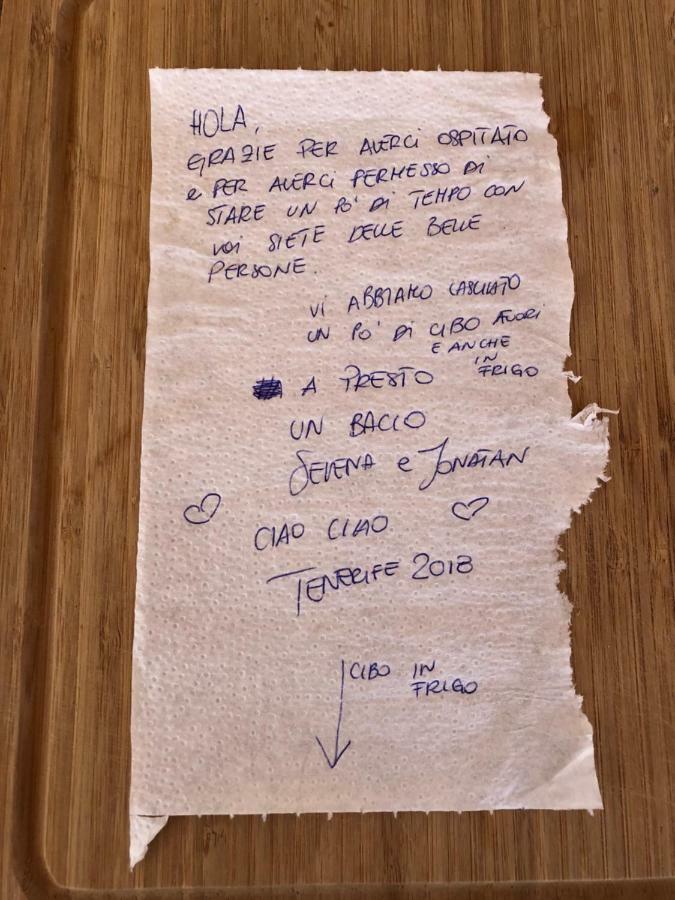 HOLA,
GRAZIE PER AVERCI OSPITATO
e PER AVERCI PERMESSO DI
STARE UN PO' DI TEMPO CON
VOI SIETE DELLE BELLE
PERSONE.
VI ABBIAMO LASCIATO
UN PO' DI CIBO FUORI
E ANCHE
IN
FRIGO
A PRESTO
UN BACIO
SERENA e JONATAN
CIAO CIAO
TENERIFE 2018
CIBO IN
FRIGO